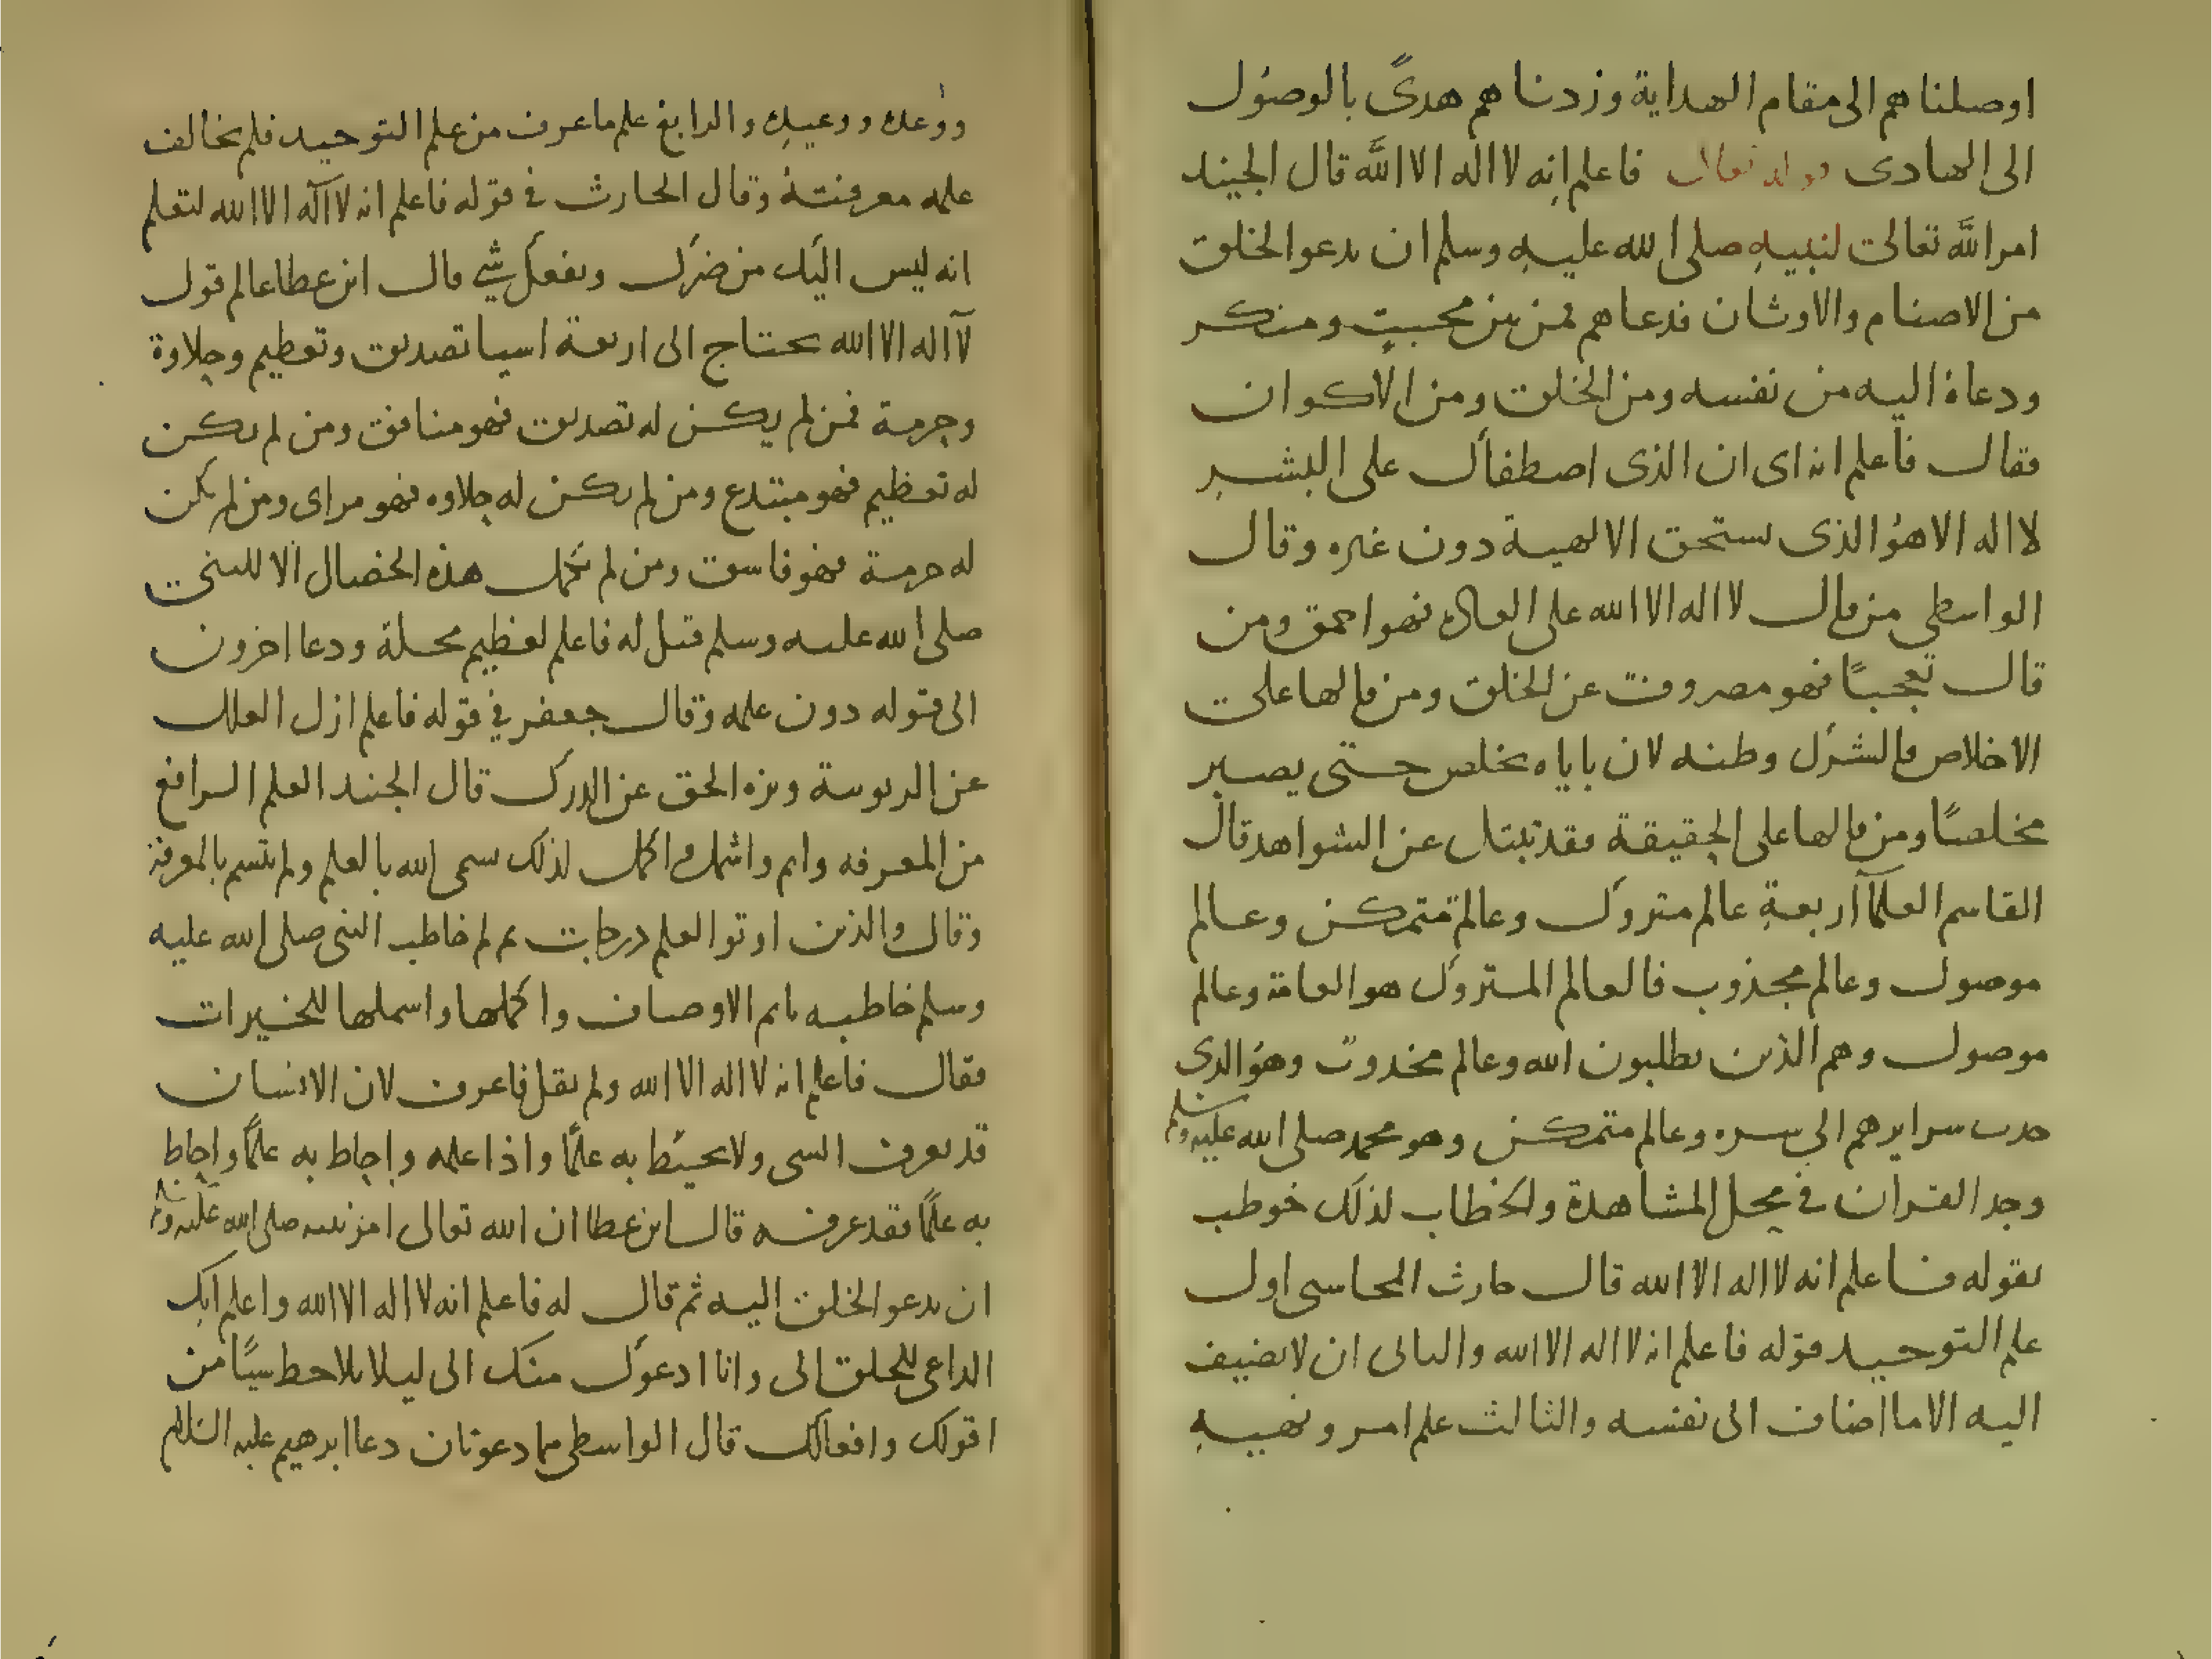 اوصلناهم الى مقام الهداية وزدناهم هدىً بالوصُول
الى الهادى قوله تعالى فاعلم انه لا اله الا اللّه قال الجنيد
امر اللّه تعالى لنبيهِ صلى الله عليهِ وسلم ان يدعو الخلق
من الاصنام والاوثان فدعاهم فمن بين محببٍ ومنكر
ودعاهُ اليه من نفسه ومن الخلق ومن الاكوان
فقال فاعلم انه اى ان الذى اصطفاك على البشر
لا اله الا هُو الذى يستحق الالهية دون غيره وقال
الواسطى من قال لا اله الا الله على العاده فهو احمق ومن
قال تعجبًا فهو مصروف عن الخلق ومن قالها على
الاخلاص فالشرك وطنه لان باياه يخلص حتى يصير
مخلصًا ومن قالها على الحقيقة فقد تبتل عن الشواهد قال
القاسم العلمآ اربعةِ عالم متروك وعالم متمكن وعالم
موصول وعالم مجذوب فالعالم المتروك هو العامة وعالم
موصول وهم الذين يطلبون الله وعالم مجذوب وهُو الذى
جذب سرايرهم الى سره وعالم متمكن وهو محمد صلى الله عليه وسلم
وجد القران فى محل المشاهدة والخطاب لذلك خوطب
بقوله فاعلم انه لا اله الا الله قال حارث المحاسبى اول
علم التوحيد قوله فاعلم انه لا اله الا الله والثانى ان لا يضيف
اليه الا ما اضاف الى نفسه والثالث علم امر ونهيهِ
ووعدك ووعيدِك والرابع علم ما عرف من علم التوحيد فلم يخالف
علمه معرفتهُ وقال الحارث فى قوله فاعلم انه لا آله الا الله لتعلم
انه ليس اليك من ضرك ونفعك شى قال ابن عطا عالم قول
لآ اله الا الله يحتاج الى اربعة اسيا تصديق وتعظيم وحلاوة
وحرمة فمن لم يكن له تصديق فهو منافق ومن لم يكن
له تعظيم فهو مبتدع ومن لم يكن له حلاوه فهو مراى ومن لم يكن
له حرمة فهو فاسق ومن لم تكمل هذه الخصال الا للنبى
صلى الله عليه وسلم قيل له فاعلم لعظيم محلة ودعا اخرون
الى قوله دون علمه وقال جعفر فى قوله فاعلم ازل العلل
عن الربوبية ونزه الحق عن الدرك قال الجنيد العلم ارفع
من المعرفه واتم واشمل واكمل لذلك سمى الله بالعلم ولم يتسم بالمعرفة
وقال والذين اوتوا العلم درجات ثم لم خاطب النبى صلى الله عليه
وسلم خاطبه باتم الاوصاف واكملها واشملها للخيرات
فقال فاعلم انه لا اله الا الله ولم يقل فاعرف لان الانسان
قد يعرف الشى ولا يحيط به علمًا واذا علمه واحاط به علمًا واحاط
به علمًا فقد عرفه قال ابن عطا ان الله تعالى امر نبيه صلى الله عليه وسلم
ان يدعو الخلق اليه ثم قال له فاعلم انه لا اله الا الله واعلم انك
الداعى للخلق الى وانا ادعوك منك الى ليلا يلاحظ شيًا من
اقولك وافعالك قال الواسطى هما دعوتان دعا ابرهيم عليه السلام